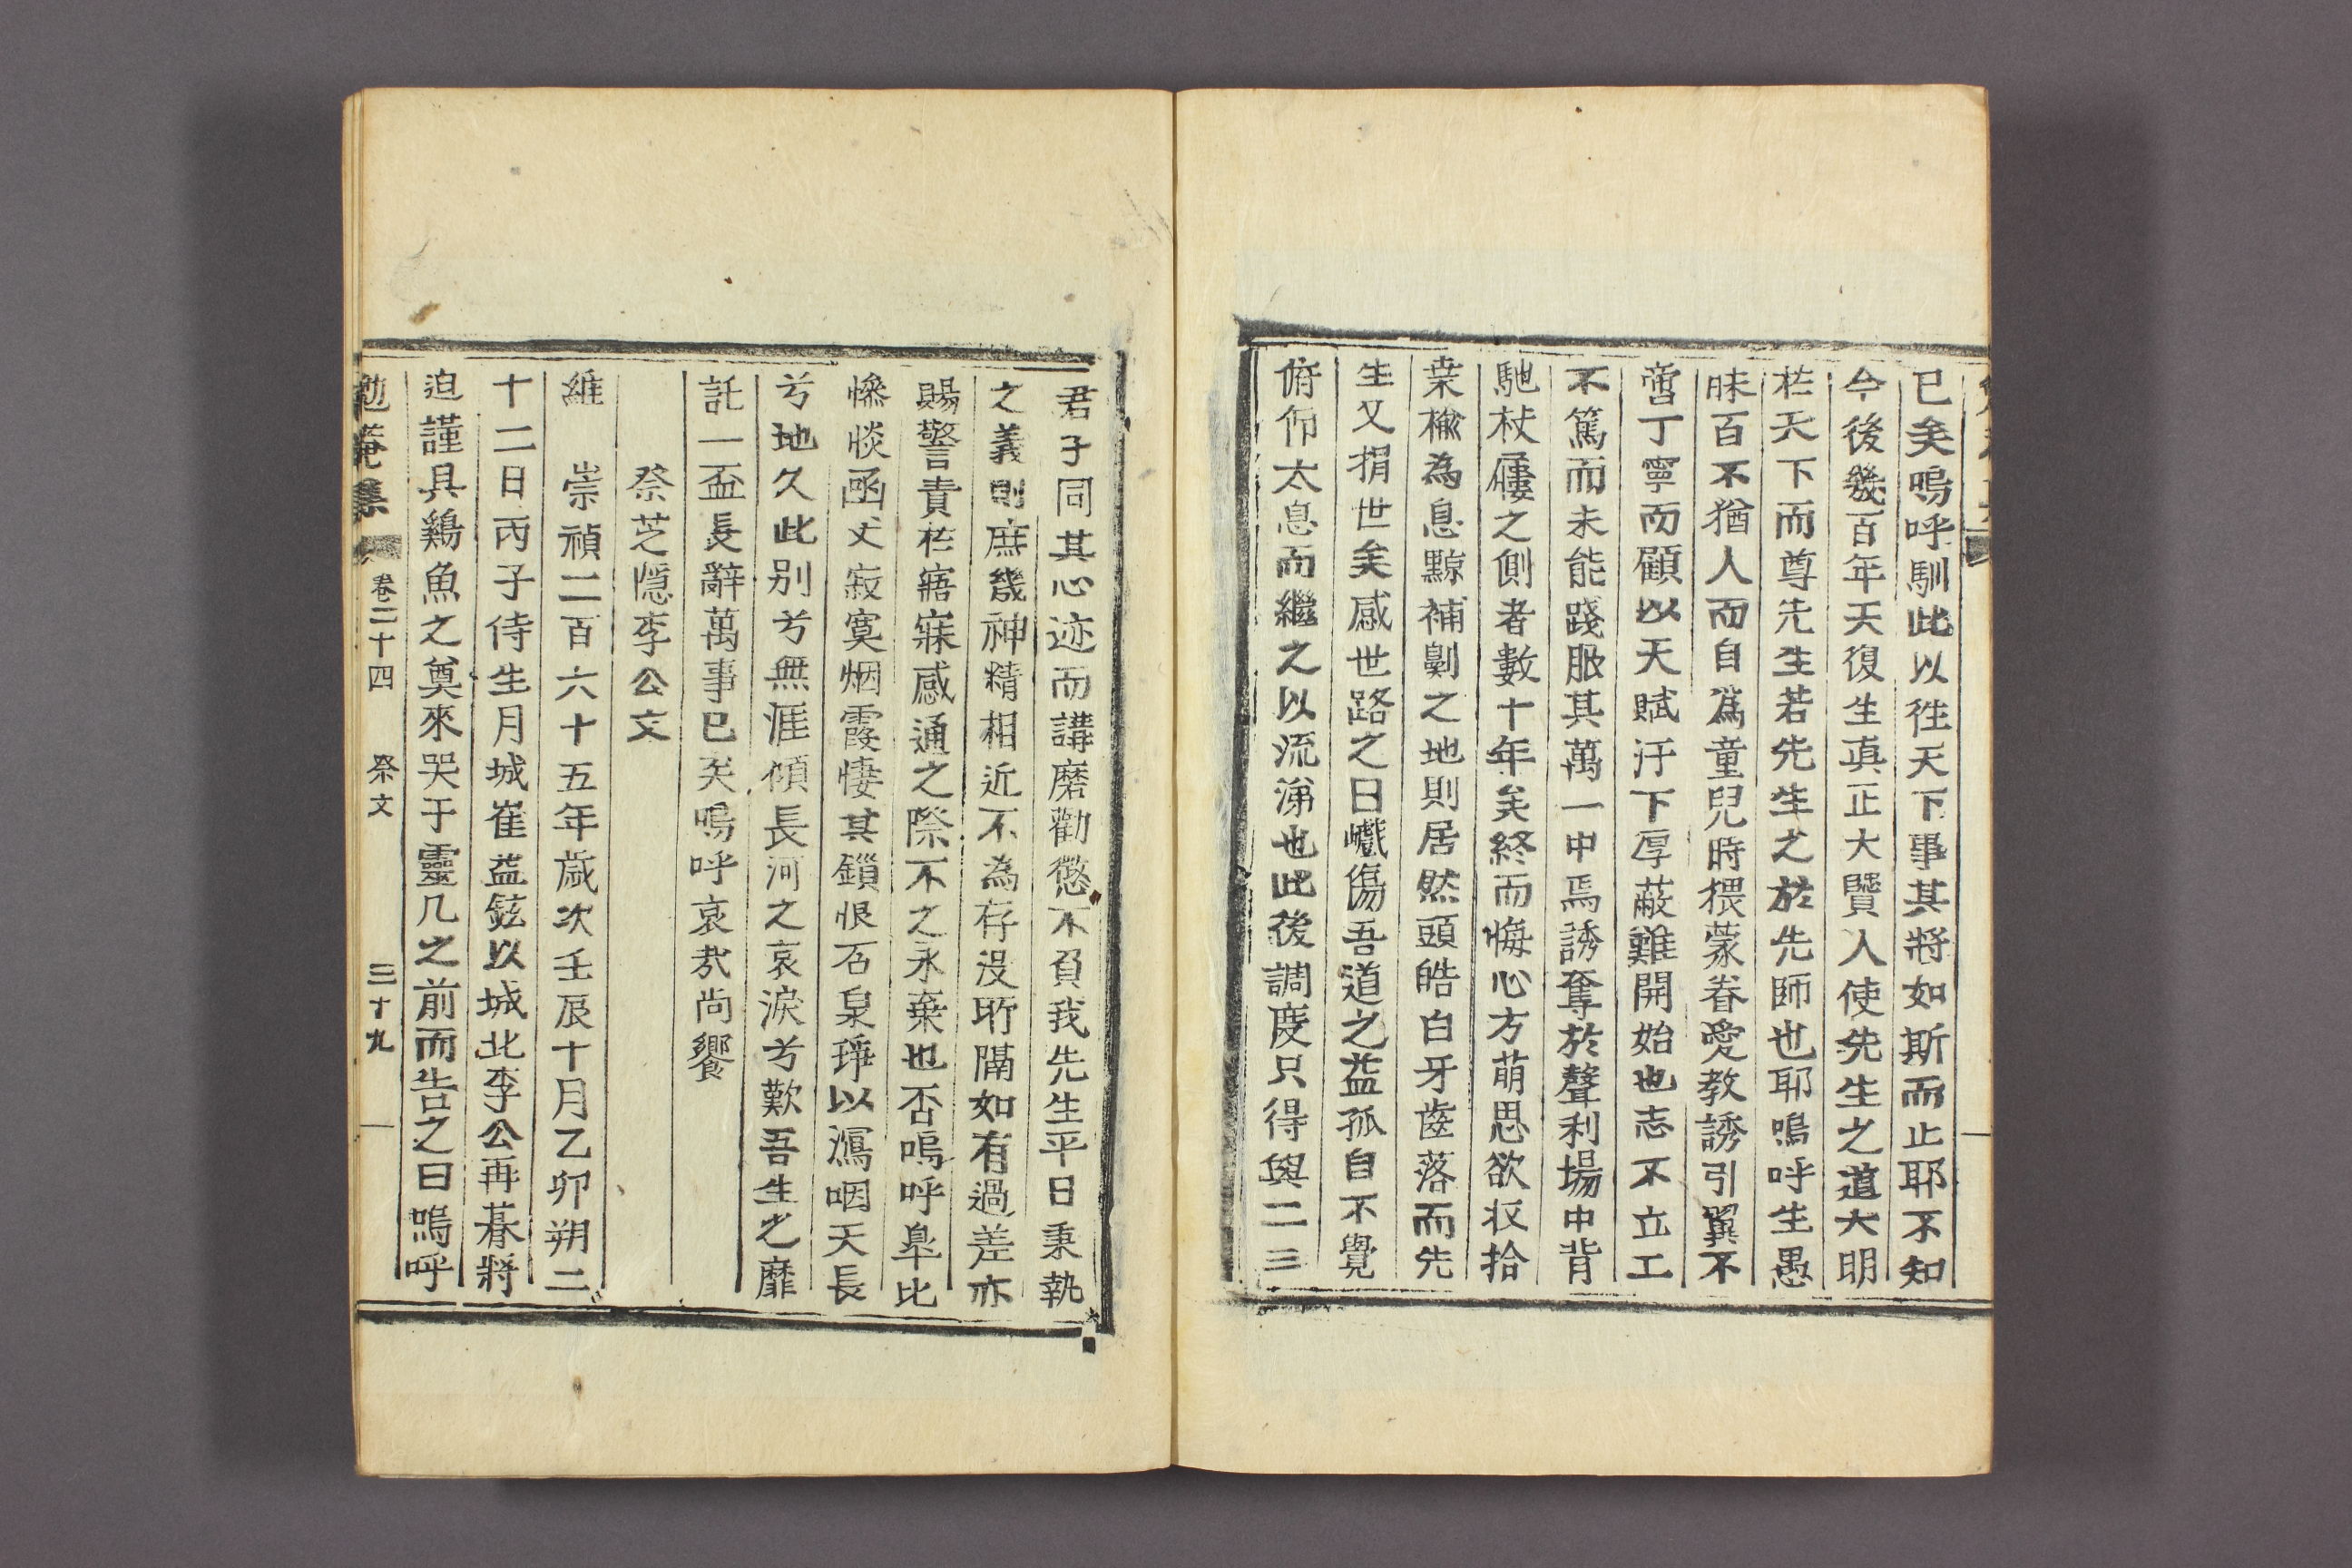 已矣嗚呼馴此以徃天下事其將如斯而止耶不知
今後幾百年天復生眞正大賢人使先生之道大明
於天下而尊先生若先生之於先師也耶嗚呼生愚
昧百不猶人而自爲童兒時猥蒙眷愛教誘引翼不
啻丁寧而顧以天賦汙下厚蔽難開始也志不立工
不篤而未能踐服其萬一中焉誘奪於聲利場中背
馳杖屨之側者數十年矣終而悔心方萌思欲収拾
桒楡為息黥補劓之地則居然頭皓白牙齒落而先
生又捐世矣感世路之日巇傷吾道之益孤自不覺
俯仰太息而繼之以流涕也此後調度只得與二三
君子同其心迹而講磨勸懲不負我先生平日秉執
之義則庶幾神精相近不為存沒所隔如有過差亦
賜警責於寤寐感通之際不之永棄也否嗚呼臯比
慘惔函丈寂寞烟霞悽其鎖恨石泉琤以瀉咽天長
兮地久此別兮無涯傾長河之哀淚兮歎吾生之靡
託一盃長辭萬事已矣嗚呼哀㢤尚饗
祭芝隱李公文
維 崇禎二百六十五年歲次壬辰十月乙卯朔二
十二日丙子侍生月城崔益鉉以城北李公再朞將
迫謹具鷄魚之奠來哭于靈几之前而告之曰嗚呼
勉菴集 卷二十四 祭文 三十九